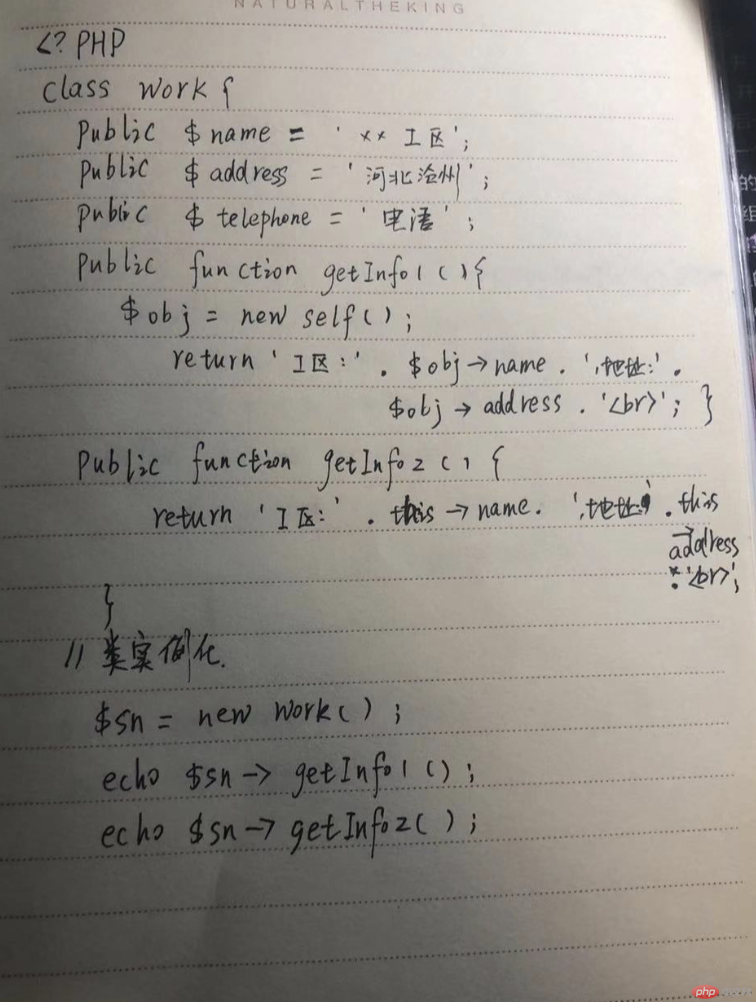 NATURALTHEKING
<? PHP
class work {
public $ name = ' ×× 工区';
public $ address = '河北沧州';
public $ telephone = '电话';
public function getInfo1 () {
$obj = new self();
return '工区:' . $obj→name . ',地址:' .
$obj → address . '<br>'; }
public function getInfo2 () {
return '工区:' . this → name . ',地址' . this
→
address
. '<br>';
}
// 类实例化.
$sn = new work();
echo $sn -> getInfo1 ();
echo $sn -> getInfo2 ();
的
组
php